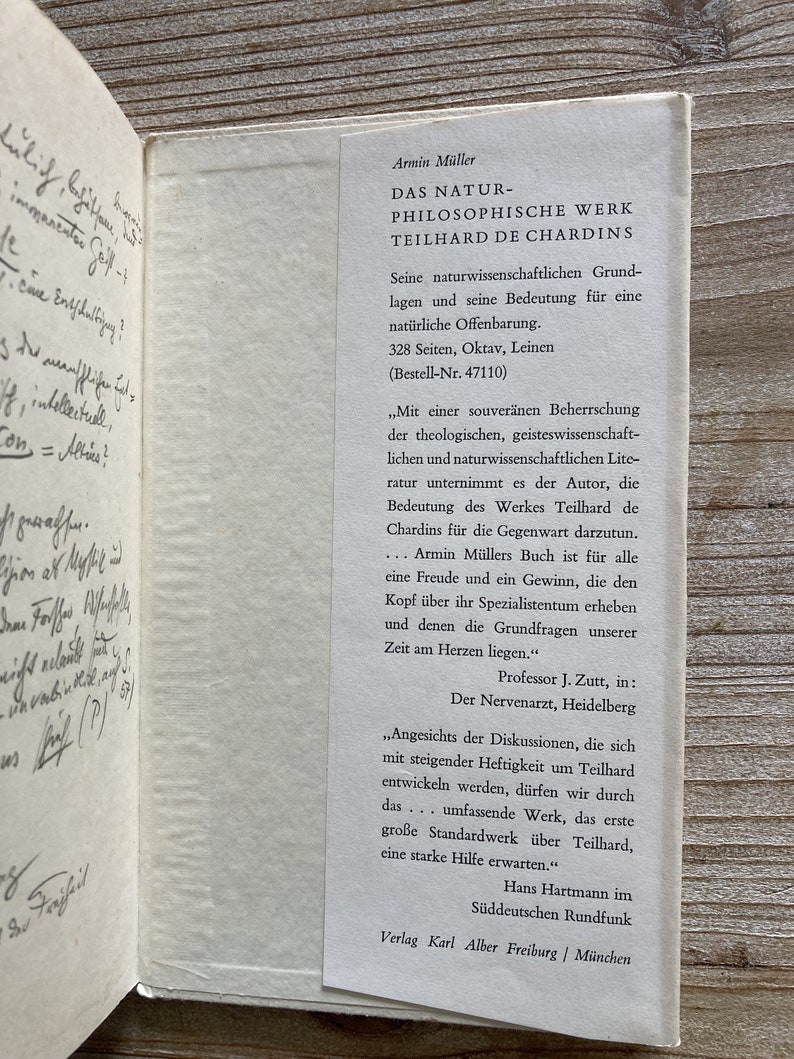 immanenter Geist - ?
eine Entschuldigung?
intellectuell,
= Altius?
als Mystik und
nicht erlaubt
unverbindlich, auf S.
(P) 57)
Freiheit
Armin Müller
DAS NATUR-
PHILOSOPHISCHE WERK
TEILHARD DE CHARDINS
Seine naturwissenschaftlichen Grund-
lagen und seine Bedeutung für eine
natürliche Offenbarung.
328 Seiten, Oktav, Leinen
(Bestell-Nr. 47110)
„Mit einer souveränen Beherrschung
der theologischen, geisteswissenschaft-
lichen und naturwissenschaftlichen Lite-
ratur unternimmt es der Autor, die
Bedeutung des Werkes Teilhard de
Chardins für die Gegenwart darzutun.
. . . Armin Müllers Buch ist für alle
eine Freude und ein Gewinn, die den
Kopf über ihr Spezialistentum erheben
und denen die Grundfragen unserer
Zeit am Herzen liegen.“
Professor J. Zutt, in:
Der Nervenarzt, Heidelberg
„Angesichts der Diskussionen, die sich
mit steigender Heftigkeit um Teilhard
entwickeln werden, dürfen wir durch
das . . . umfassende Werk, das erste
große Standardwerk über Teilhard,
eine starke Hilfe erwarten.“
Hans Hartmann im
Süddeutschen Rundfunk
Verlag Karl Alber Freiburg / München